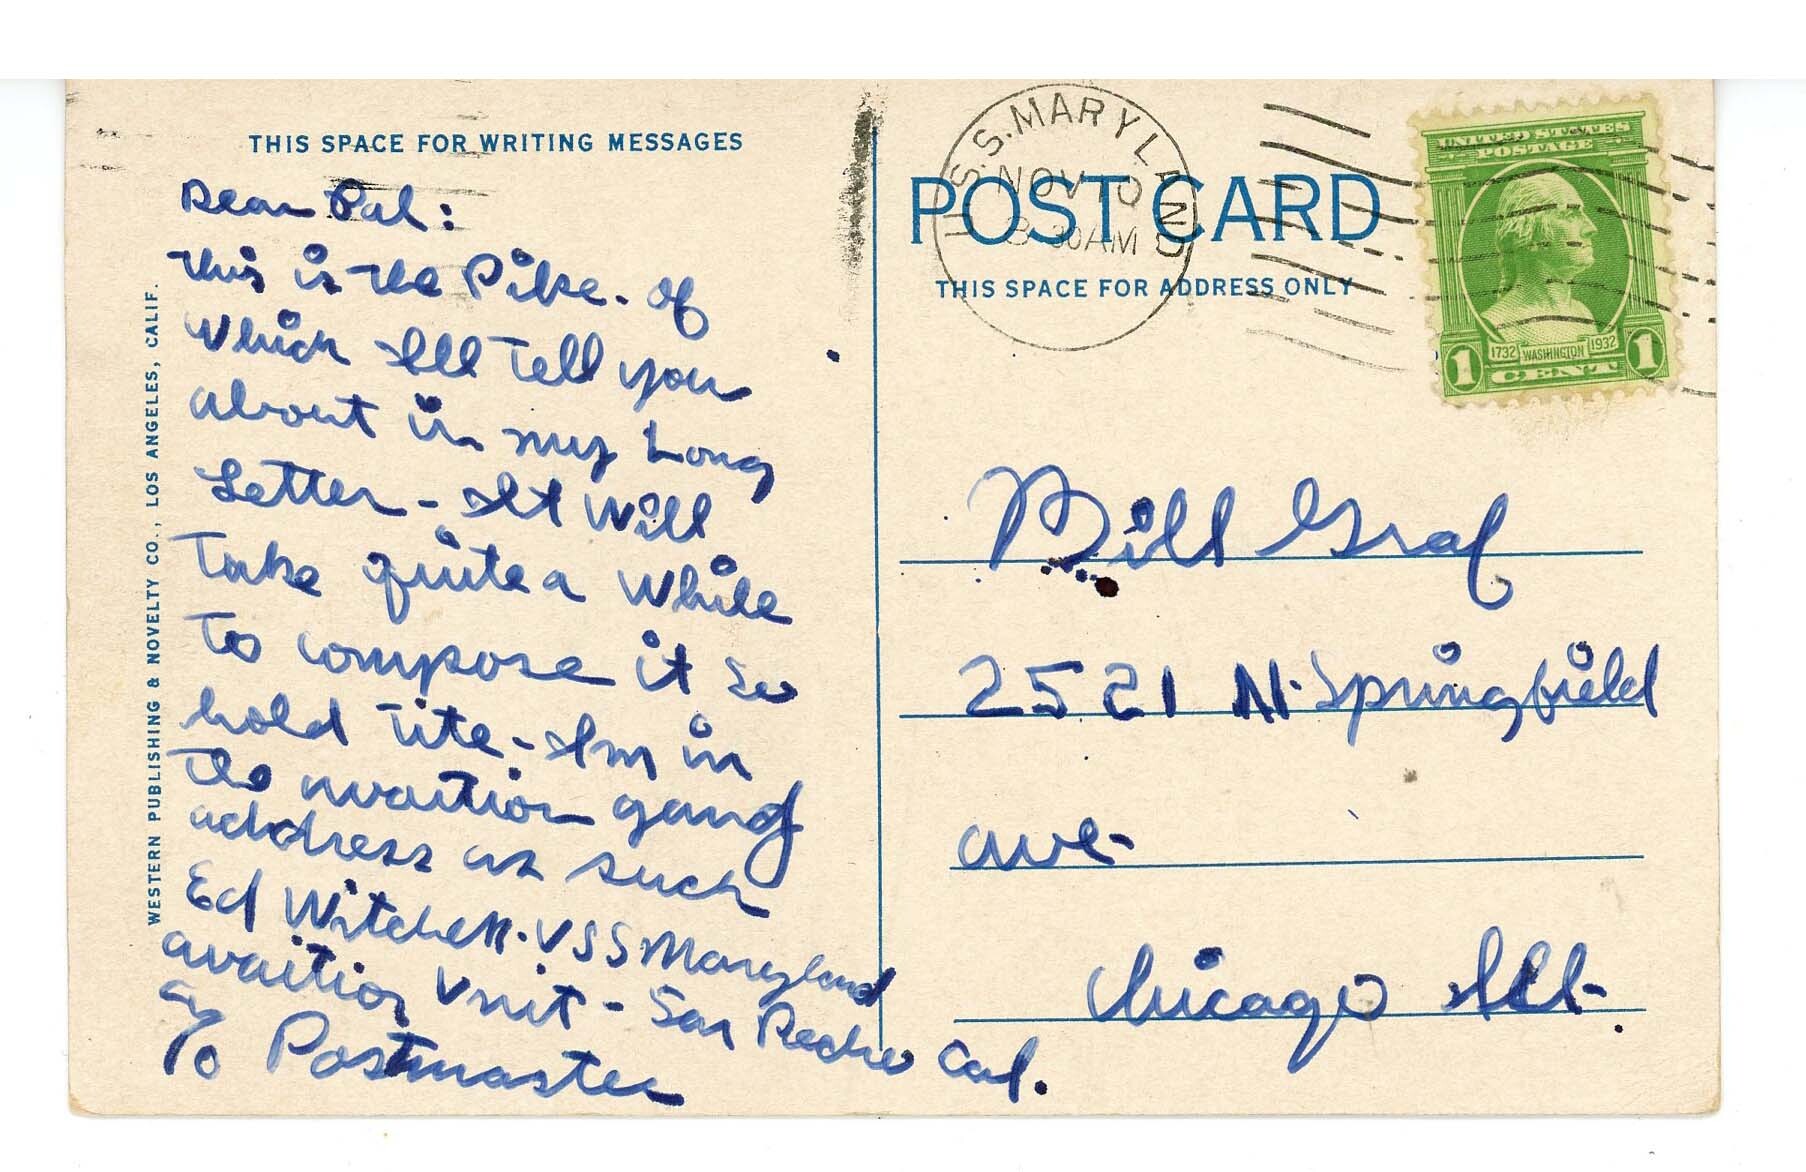 THIS SPACE FOR WRITING MESSAGES
Dear Pal:
this is the Pike. of
which Ill Tell you
about in my Long
Letter - It will
Take quite a while
To compose it so
hold Tite - Im in
the avaition gang
address as such
Ed Witchell. USS Maryland
avaition Unit - San Pedro Cal.
c/o Postmaster
WESTERN PUBLISHING & NOVELTY CO., LOS ANGELES, CALIF.
U.S.S. MARYLAND
NOV 10
8 30 AM
POST CARD
THIS SPACE FOR ADDRESS ONLY
UNITED STATES
POSTAGE
1732 WASHINGTON 1932
1 CENT 1
Bill Graf
2521 N. Springfield
ave-
Chicago Ill-